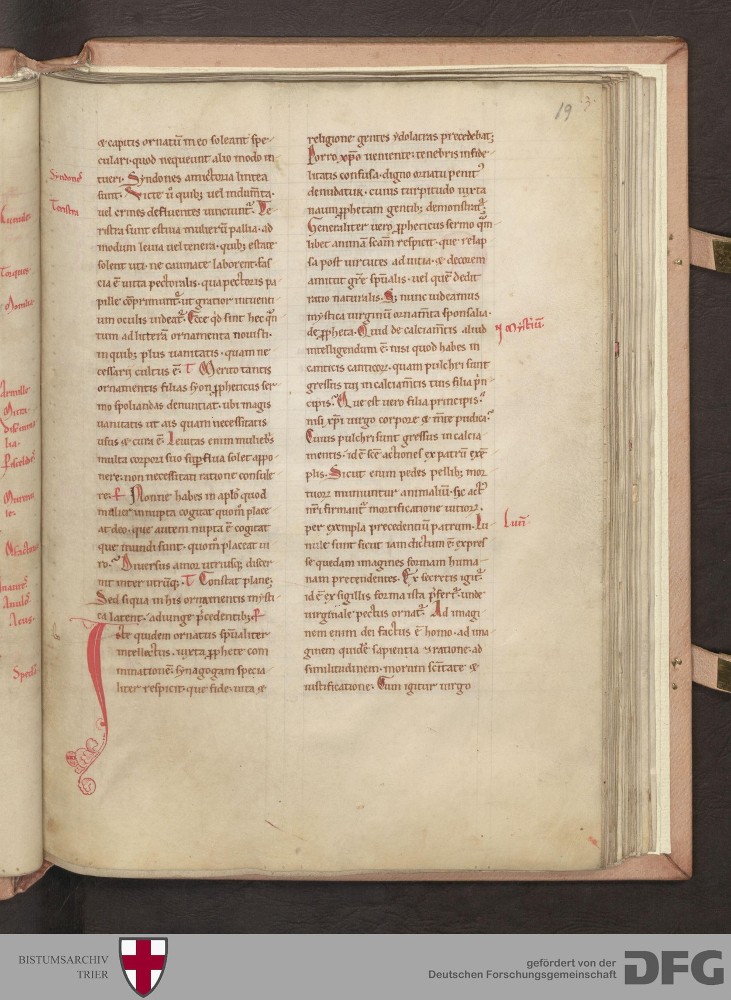 19
·3·
& capitis ornatū in eo soleant spe-
culari· quod nequeunt alio modo in
tueri· Syndones amictoria lintea
sunt· Victe ů quibȝ uel indum̄ta·
uel crines defluentes uinciunt᷑· Te
ristra sunt estiua mulierū pallia· ad
modum leuia uel tenera· quibȝ estate
solent uti· ne caumate laborent· fas
cia ē uitta pectoralis· qua pectoris pa
pille cōprimunt᷑· ut gratior intuenti
um oculis uideat᷑· Ecce qd sint hec q̄n
tum ad litterā ornamenta nouisti·
in quibȝ plus uanitatis· quam ne
cessarii cultus ē· T Merito tantis
ornamentis filias syon ppheticus ser
mo spoliandas denunciat· ubi magis
uanitatis ut ais quam necessitatis
usus & cura ē· Leuitas enim muliebris
multa corpori suo supflua solet appo-
nere· non necessitati ratione consule
re· P Nonne habes in aplo quod
mulier innupta cogitat quom̄ place
at deo· que autem nupta ē cogitat
que mundi sunt· quom̄ placeat ui
ro· Diuersus amor utriusqȝ discer
nit inter utrūqȝ· T Constat plane;
Sed si qua in his ornamentis mysti
ca latent· adiunge p̄cedentibȝ· P
Iste quidem ornatus spūaliter
intellectus· iuxta pphete com
minationē synagogam specia
liter respicit· que fide· uita &
religione gentes ydolatras precedebat;
Porro xp̄o ueniente· tenebris infide-
litatis confusa· digno ornatu penit᷒
denudatur· cuius turpitudo iuxta
naum pphetam gentibȝ demonstrat᷑·
Generaliter uero ppheticus sermo q̄m
libet animā scām respicit· que relap
sa post uirtutes ad uitia· & decorem
amittit grē spūalis· uel quē dedit
ratio naturalis· Sȝ nunc uideamus
mystica uirginū ornam̄ta sponsalia·
de ppheta· Quid de calciam̄tis aliud
intelligendum ē· nisi quod habes in
canticis canticoꝝ· quam pulchri sunt
gressus tui in calciam̄tis tuis filia p̄n
cipis· Que est uero filia principis·
nisi xp̄i uirgo corpore & m̄te pudica·
Cuius pulchri sunt gressus in calcia
mentis· id ē scē actiones ex patrū exē
plis· Sicut enim pedes pellibȝ mor
tuoꝝ muniuntur animaliū· sic act᷒
nr̄i firmant᷑ mortificatione uitioꝝ·
per exempla precedentiū patrum· Lu
nule sunt sicut iam dictum ē expres
se quedam imagines formam huma
nam pretendentes· Ex secretis igit᷑
id ē ex sigillis forma ista p̄fert᷑· unde
uirginale pectus ornat᷑· Ad imagi
nem enim dei factus ē homo· ad ima
ginem quidē sapientia & ratione· ad
similitudinem· morum sc̄itate &
iustificatione· Cum igitur uirgo
Syndones
Teristra
Mysteriū·
Lun̄·
BISTUMSARCHIV
TRIER
gefördert von der
Deutschen Forschungsgemeinschaft
DFG